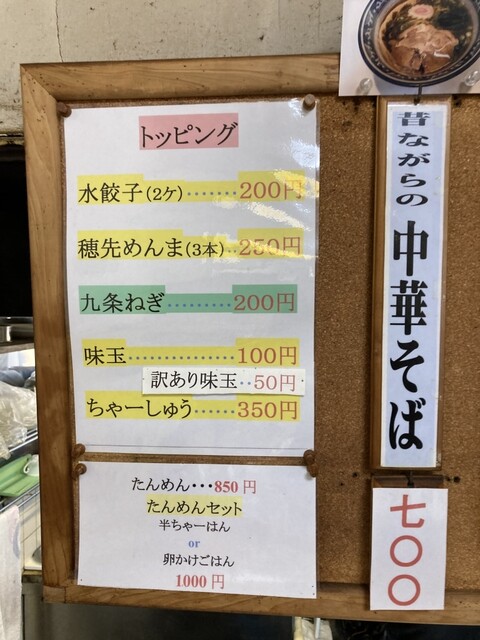 トッピング
水餃子(2ケ)‥‥‥‥200円
穂先めんま(3本)‥‥250円
九条ねぎ‥‥‥‥‥200円
味玉‥‥‥‥‥‥‥100円
訳あり味玉‥50円
ちゃーしゅう‥‥‥350円
たんめん・・・850円
たんめんセット
半ちゃーはん
or
卵かけごはん
1000円
昔ながらの 中華そば
七〇〇